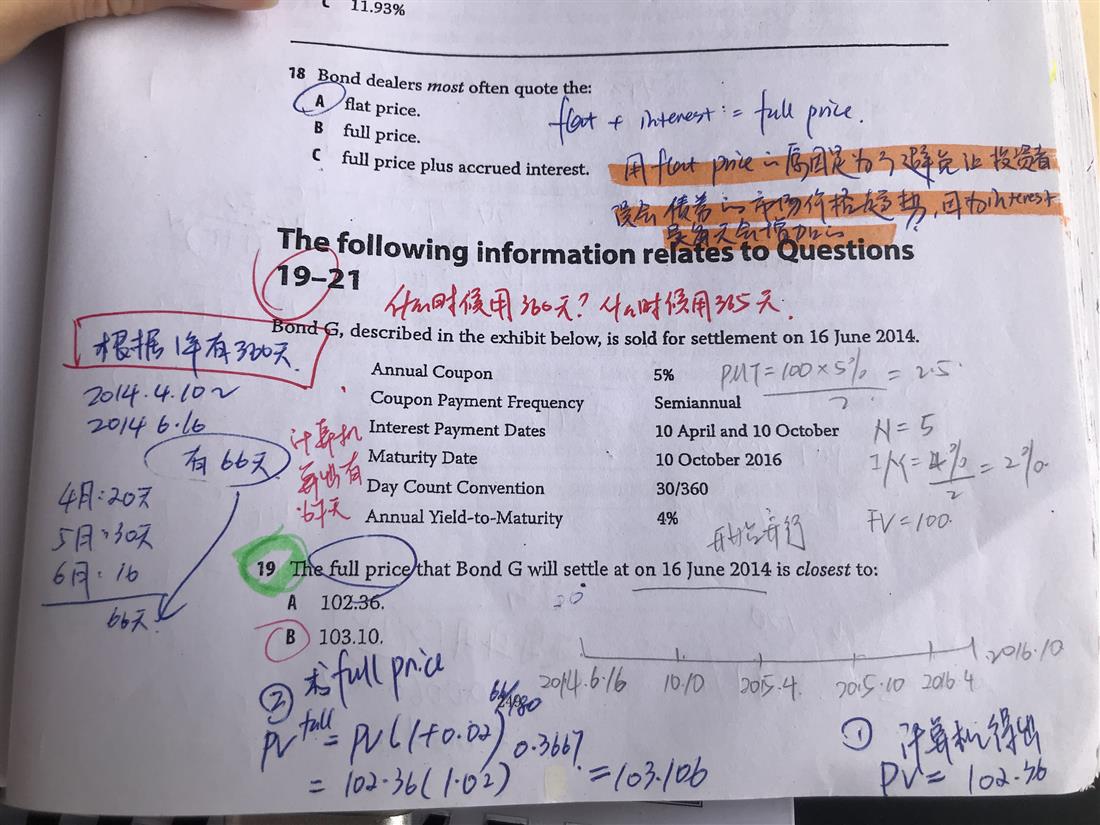 C 11.93%
18 Bond dealers most often quote the:
A flat price.
B full price.
C full price plus accrued interest.
flat + interest = full price.
用 flat price 的原因是为了避免让投资者
误会债券的市场价格趋势,因为interest
是每天会增加的
The following information relates to Questions
19–21
什么时候用360天?什么时候用365天.
Bond G, described in the exhibit below, is sold for settlement on 16 June 2014.
Annual Coupon 5%
Coupon Payment Frequency Semiannual
Interest Payment Dates 10 April and 10 October
Maturity Date 10 October 2016
Day Count Convention 30/360
Annual Yield-to-Maturity 4%
PMT = 100 × 5% / 2 = 2.5
N = 5
I/Y = 4% / 2 = 2%
FV = 100
根据1年有360天.
2014.4.10~
2014 6.16
有 66天
4月:20天
5月:30天
6月:16
66天
计算机
算出有
67天
19 The full price that Bond G will settle at on 16 June 2014 is closest to:
A 102.36.
B 103.10.
2014.6.16 10.10 2015.4. 2015.10 2016.4 2016.10
② 求 full price
PV full = PV(1+0.02) 66/180
= 102.36(1.02) 0.3667 = 103.106
① 计算机得出
PV = 102.36